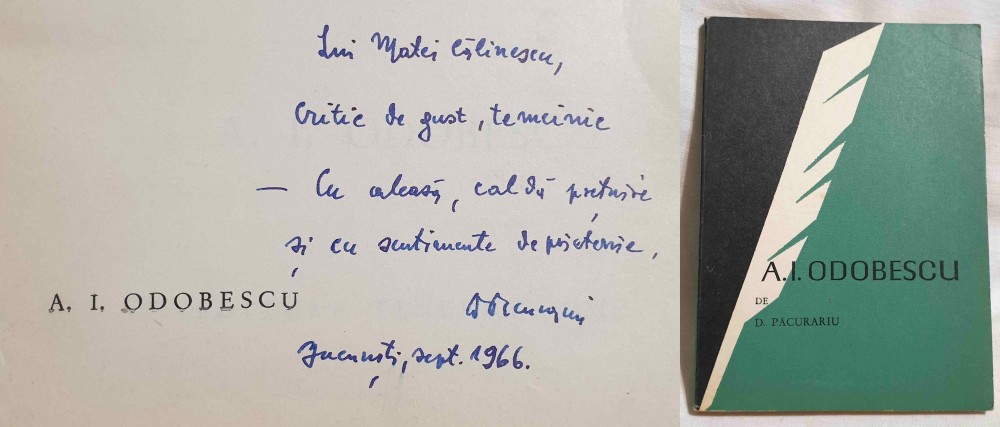 Lui Matei Călinescu,
Critic de gust, temeinic
— Cu aleasă, caldă prețuire
și cu sentimente de prietenie,
A. I. ODOBESCU
București, sept. 1966.
A. I. ODOBESCU
DE
D. PĂCURARIU